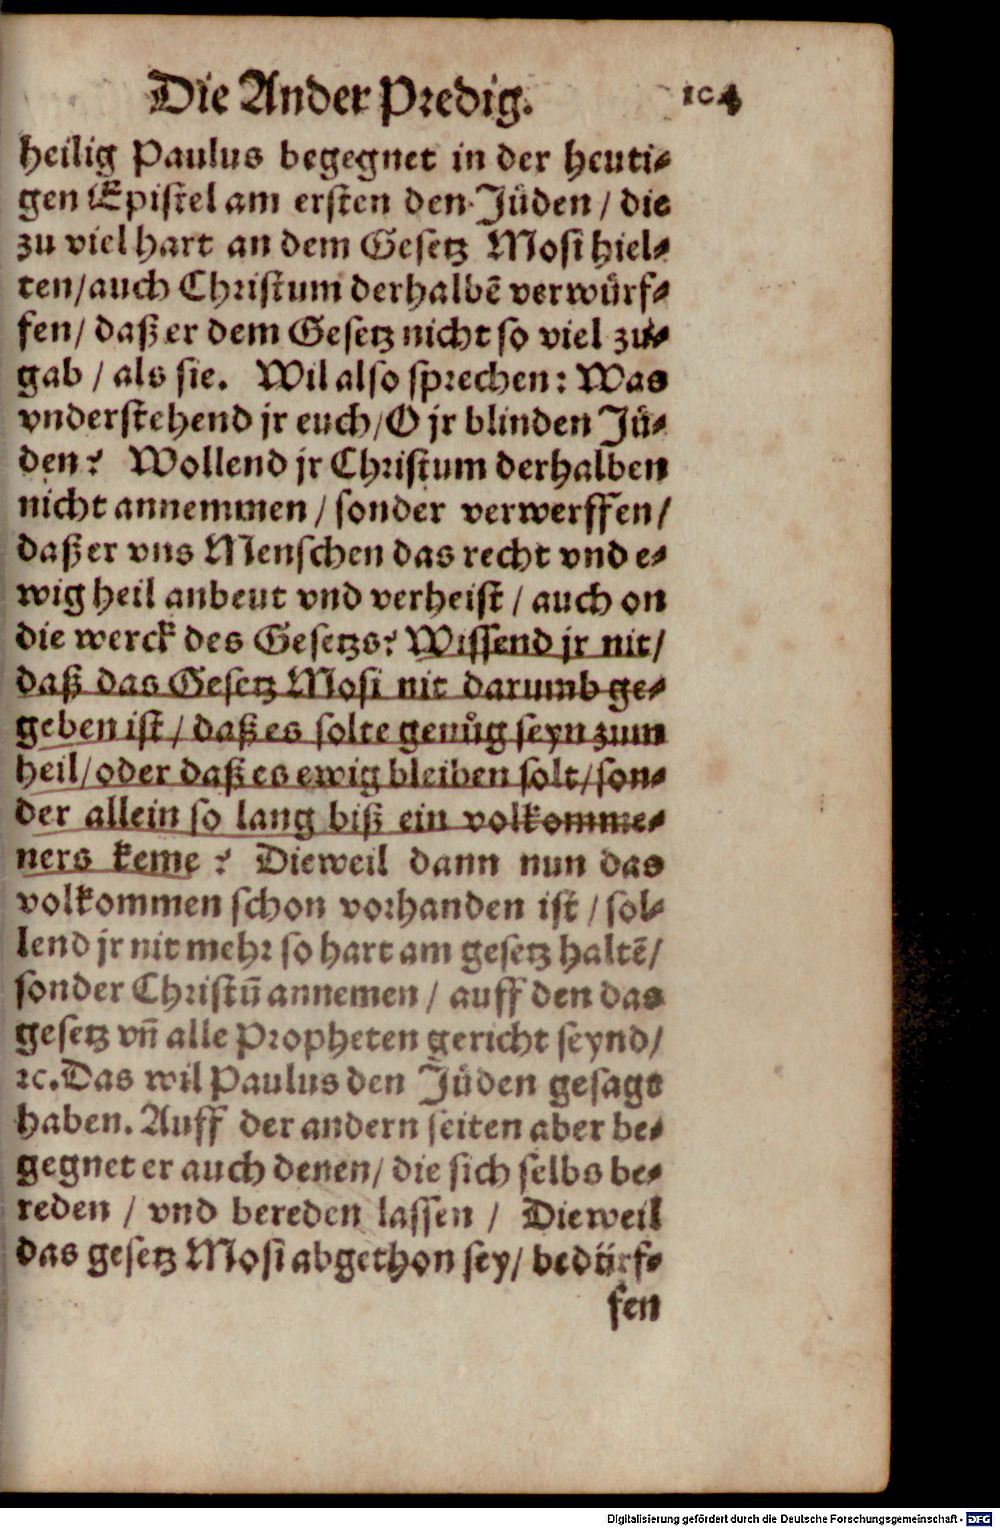 Die Ander Predig. 104
heilig Paulus begegnet in der heuti-
gen Epistel am ersten den Jüden / die
zu viel hart an dem Gesetz Mosi hiel-
ten/auch Christum derhalbē verwürf-
fen/ daß er dem Gesetz nicht so viel zu-
gab / als sie. Wil also sprechen: Was
vnderstehend jr euch/O jr blinden Jü-
den? Wollend jr Christum derhalben
nicht annemmen / sonder verwerffen/
daß er vns Menschen das recht vnd e-
wig heil anbeut vnd verheist / auch on
die werck des Gesetzs? Wissend jr nit/
daß das Gesetz Mosi nit darumb ge-
geben ist / daß es solte genůg seyn zum
heil/oder daß es ewig bleiben solt/son-
der allein so lang biß ein volkomme-
ners keme? Dieweil dann nun das
volkommen schon vorhanden ist / sol-
lend jr nit mehr so hart am gesetz haltē/
sonder Christū annemen / auff den das
gesetz vn̄ alle Propheten gericht seynd/
ꝛc. Das wil Paulus den Jüden gesagt
haben. Auff der andern seiten aber be-
gegnet er auch denen/ die sich selbs be-
reden / vnd bereden lassen / Dieweil
das gesetz Mosi abgethon sey/ bedürf-
fen
Digitalisierung gefördert durch die Deutsche Forschungsgemeinschaft - DFG